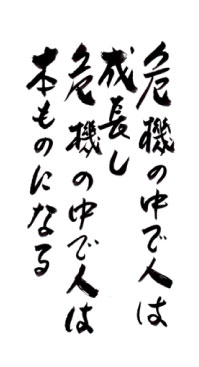 危機の中で人は
成長し
危機の中で人は
本ものになる